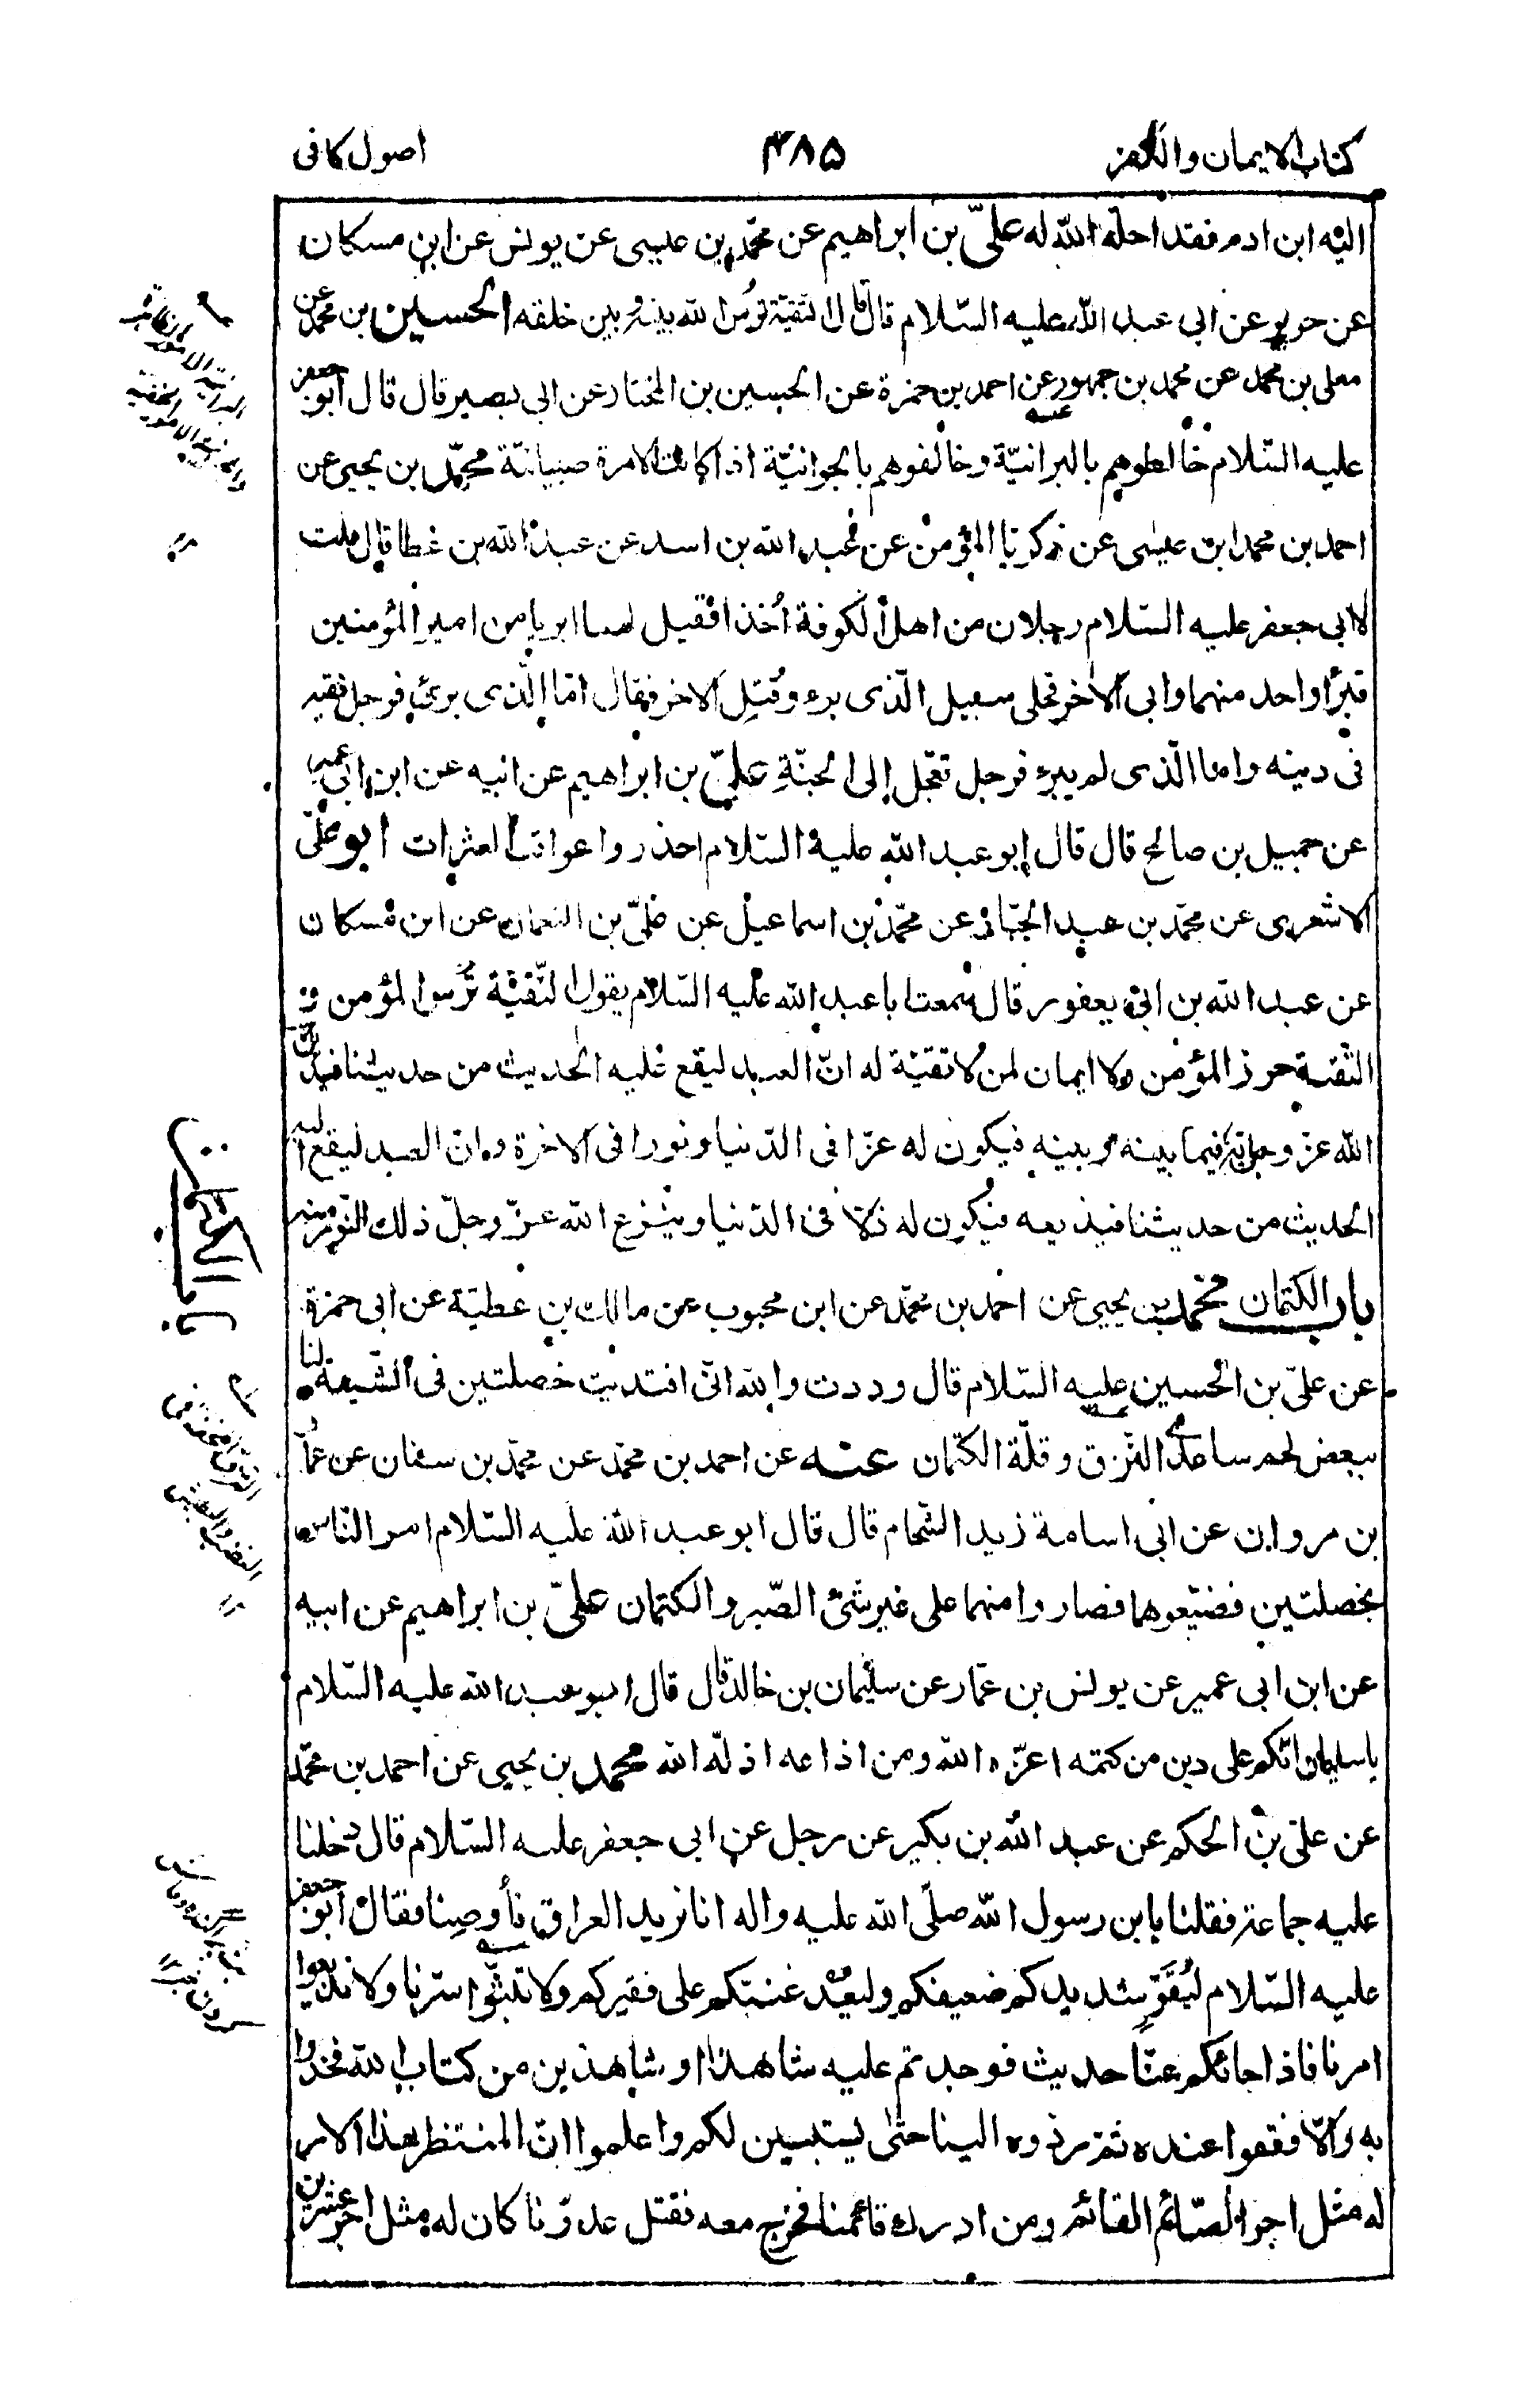 كتاب الايمان والكفر ٤٨٥ اصول كافى
اليه ابن ادم فقد احلّه الله له علىّ بن ابراهيم عن محمّد بن عيسى عن يونس عن ابن مسكان
عن حريز عن ابى عبد الله عليه السّلام قال قال التقيّة تُرس الله بينه وبين خلقه الحسين بن محمد عن
معلى بن محمد عن محمد بن جمهور عن احمد بن حمزة عن الحسين بن المختار عن ابى بصير قال قال ابو جعفر
عليه السّلام خالطوهم بالبرانيّة وخالفوهم بالجوانيّة اذا كانت الامرة صبيانيّة محمّد بن يحيى عن
احمد بن محمد ابن عيسى عن زكريّا المؤمن عن عبد الله بن اسد عن عبد الله بن عطا قال قلت
لابى جعفر عليه السّلام رجلان من اهل الكوفة اُخذا فقيل لهما ابريا من امير المؤمنين
فبرأ واحد منهما وابى الآخر فخلى سبيل الّذى برء وقُتل الاخر فقال امّا الّذى برئ فرجل فقيه
فى دينه واما الّذى لم يبرء فرجل تعجّل إلى الجنّة علىّ بن ابراهيم عن ابيه عن ابن ابى عمير
عن جميل بن صالح قال قال ابو عبد الله عليه السّلام احذروا عواقب العثرات ابو علىّ
الاشعرى عن محمّد بن عبد الجبّار عن محمّد بن اسماعيل عن علىّ بن النعمان عن ابن مسكان
عن عبد الله بن ابى يعفور قال سمعت ابا عبد الله عليه السّلام يقول التّقيّة تُرس المؤمن و
التّقيّة حرز المؤمن ولا ايمان لمن لا تقيّة له انّ العبد ليقع عليه الحديث من حديثنا فيدين
الله عزّ وجلّ به فيما بينه وبينه فيكون له عزّا فى الدّنيا ونورا فى الآخرة وانّ العبد ليقع اليه
الحديث من حديثنا فيذيعه فيكون له ذلّا فى الدّنيا وينزع الله عزّ وجلّ ذلك النّور منه
باب الكتمان محمّد بن يحيى عن احمد بن محمّد عن ابن محبوب عن مالك بن عطيّة عن ابى حمزة
عن علىّ بن الحسين عليه السّلام قال وددت والله انّى افتديت خصلتين فى الشّيعة لنا
ببعض لحم ساعدى النّزق وقلّة الكتمان عنه عن احمد بن محمّد عن محمّد بن سنان عن عمار
بن مروان عن ابى اسامة زيد الشّحام قال قال ابو عبد الله عليه السّلام امر النّاس
بخصلتين فضيّعوهما فصاروا منهما على غير شئ الصّبر والكتمان علىّ بن ابراهيم عن ابيه
عن ابن ابى عمير عن يونس بن عمّار عن سليمان بن خالد قال قال ابو عبد الله عليه السّلام
يا سليمان انّكم على دين من كتمه اعزّه الله ومن اذاعه اذلّه الله محمد بن يحيى عن احمد بن محمّد
عن علىّ بن الحكم عن عبد الله بن بكير عن رجل عن ابى جعفر عليه السّلام قال دخلنا
عليه جماعة فقلنا يا بن رسول الله صلّى الله عليه واله انا نريد العراق فأوصنا فقال ابو جعفر
عليه السّلام ليُقوِّ شديدكم ضعيفكم وليعُد غنيّكم على فقيركم ولا تبثّوا سرّنا ولا تذيعوا
امرنا فاذا جائكم عنّا حديث فوجدتم عليه شاهدا او شاهدين من كتاب الله فخذوا
به والّا فقفوا عنده ثمّ ردّوه الينا حتّى يستبين لكم واعلموا انّ المنتظر لهذا الامر
له مثل اجر الصّائم القائم ومن ادرك قائمنا فخرج معه فقتل عدوّنا كان له مثل اجر عشرين
باب الكتمان